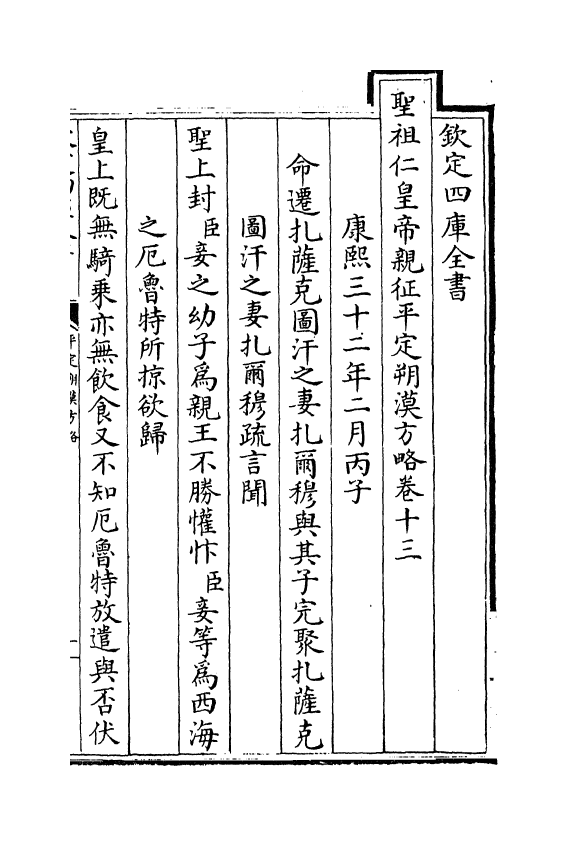 欽定四庫全書
聖祖仁皇帝親征平定朔漠方略卷十三
康熙三十二年二月丙子
命遷扎薩克圖汗之妻扎爾穆與其子完聚扎薩克
圖汗之妻扎爾穆疏言聞
聖上封臣妾之幼子爲親王不勝懽忭臣妾等爲西海
之厄魯特所掠欲歸
皇上既無騎乘亦無飲食又不知厄魯特放遣與否伏
平定朔漠方略